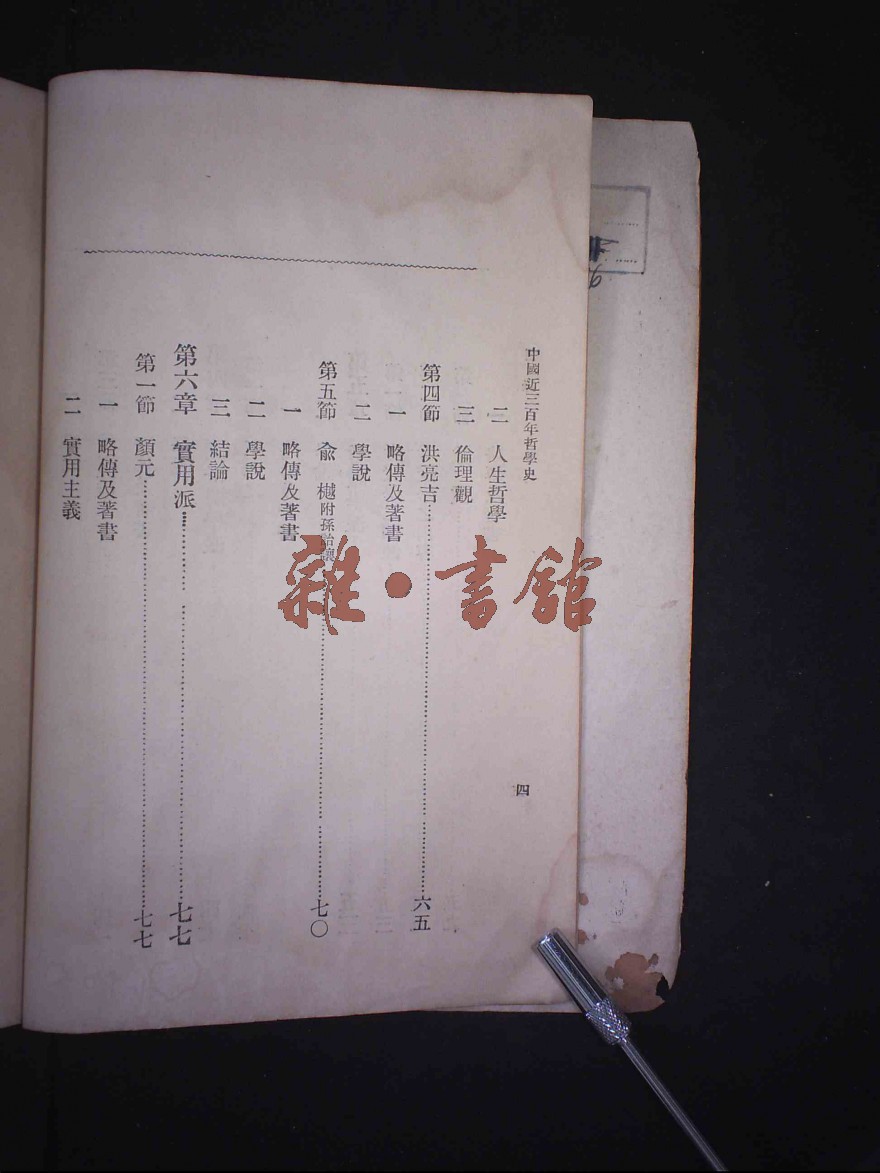 中國近三百年哲學史
四
二 人生哲學
三 倫理觀
第四節 洪亮吉……六五
一 略傳及著書
二 學說
第五節 俞樾附孫詒讓……七〇
一 略傳及著書
二 學說
三 結論
第六章 實用派……七七
第一節 顏元……七七
一 略傳及著書
二 實用主義
雜·書館